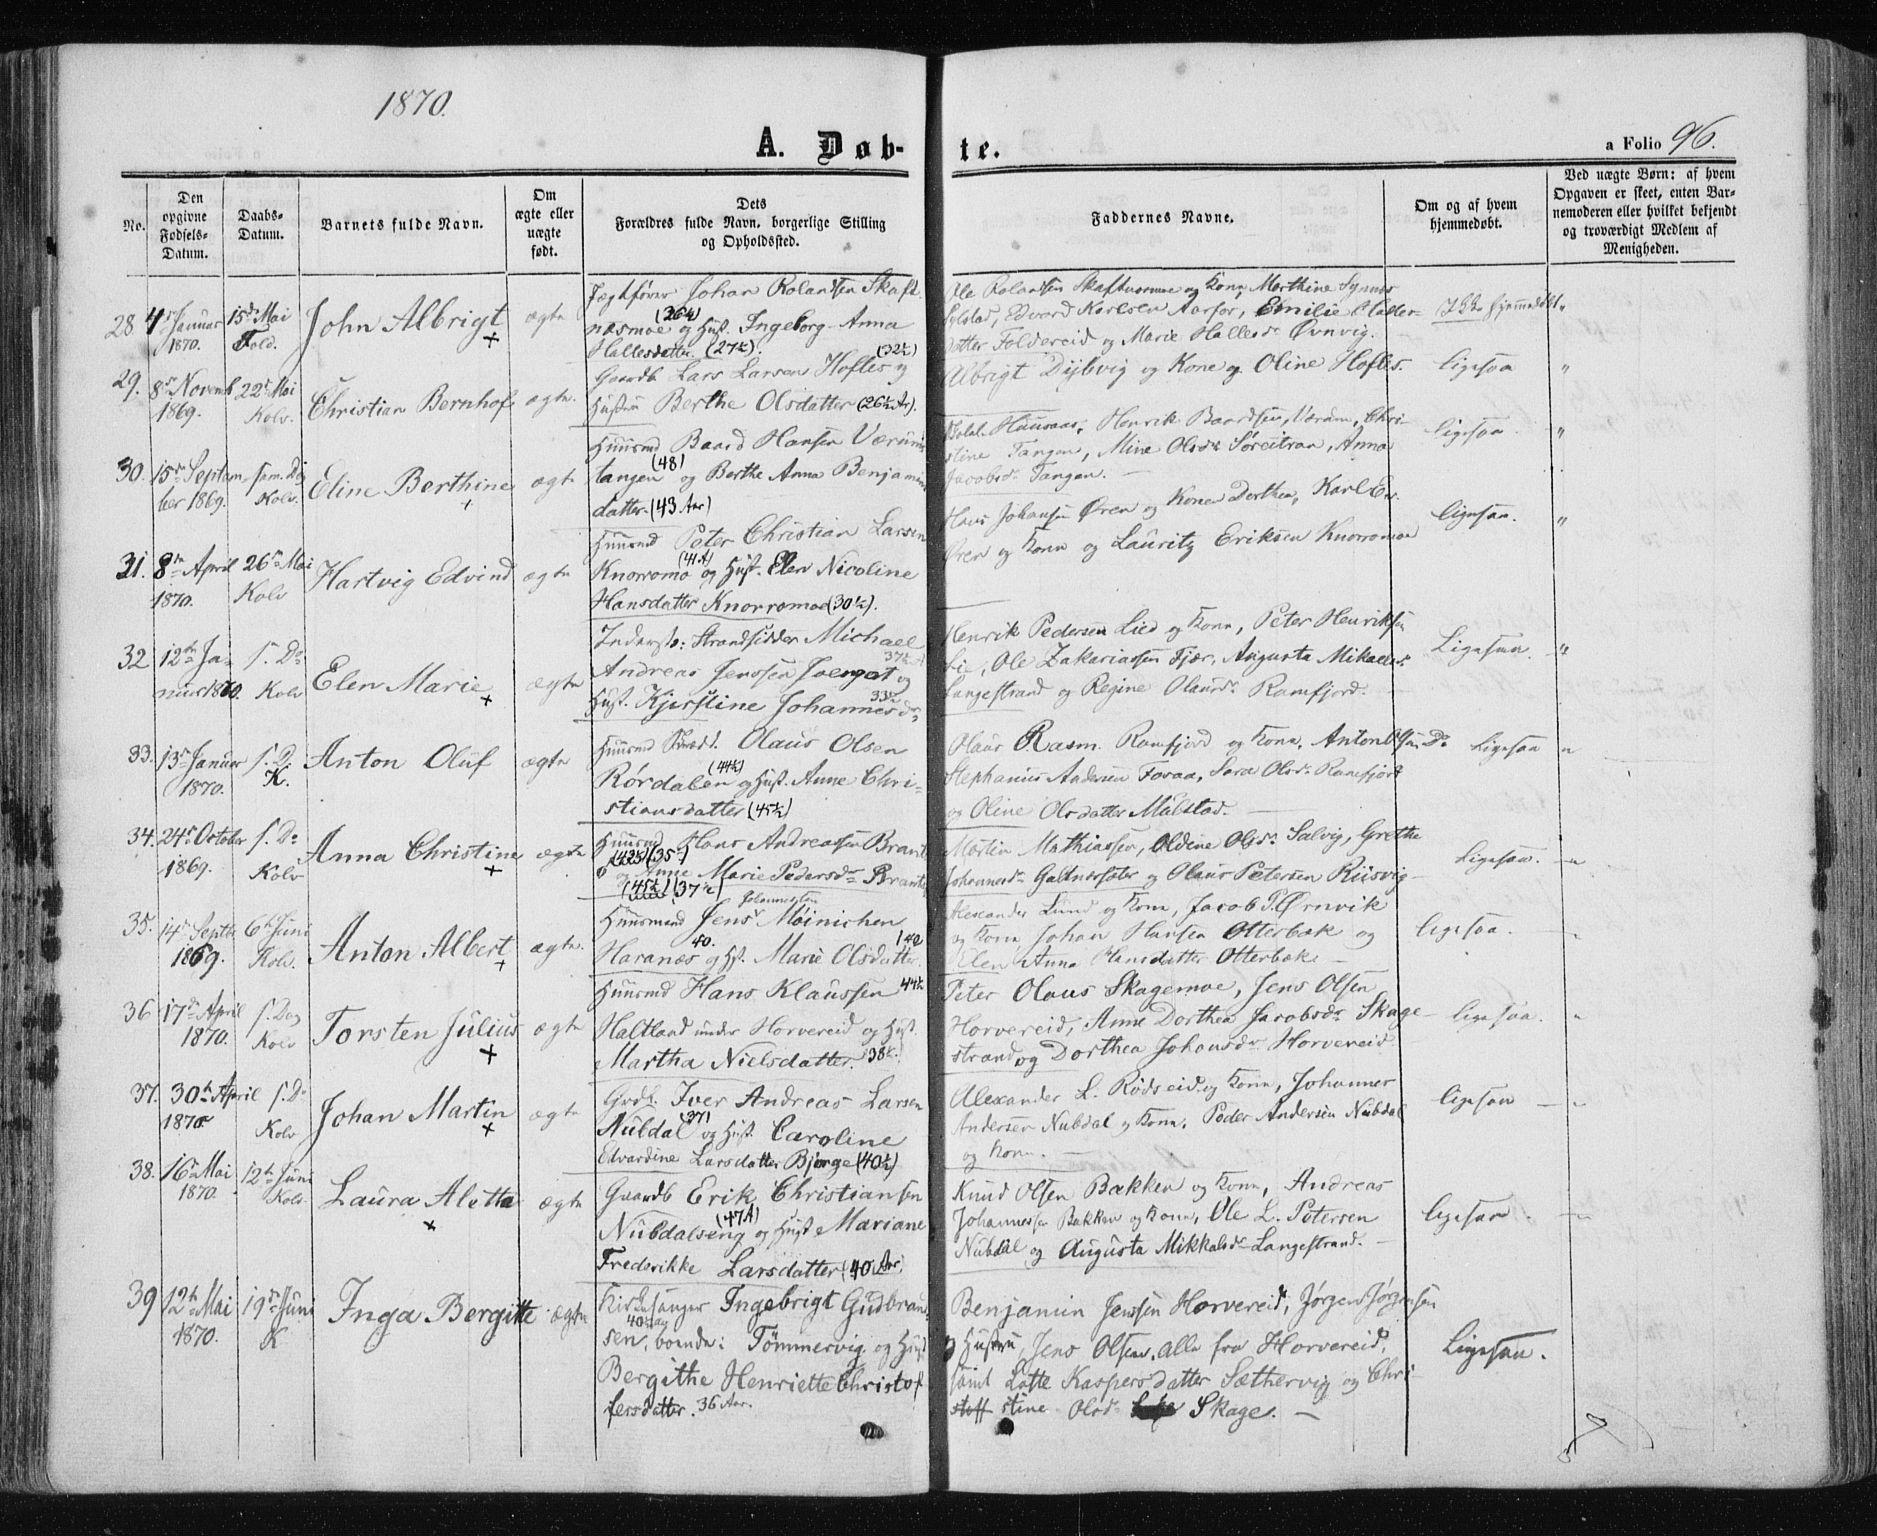 1870.
A. Døb-
te.
a Folio 96.
No.
Den opgivne Fødsels-Datum.
Daabs-Datum.
Barnets fulde Navn.
Om ægte eller uægte født.
Dets Forældres fulde Navn, borgerlige Stilling og Opholdssted.
Faddernes Navne.
Om og af hvem hjemmedøbt.
Ved uægte Børn: af hvem Opgaven er skeet, enten Barnemoderen eller hvilket bekjendt og troværdigt Medlem af Menigheden.
28. 4de Januar 1870. 15de Mai Fold. John Albrigt + ægte
Jægtfører Johan Rolandsen Skaft
næsmoe (26¾) og Hust. Ingeborg Anna
Hallesdatter. (27½).
Ole Rolandsen Skaftnæsmoe og Kone, Marthine
Edvard Karlsen Aarfor, Emilie Halles-
datter Foldereid og Marie Hallesdr Øvnvig.
Ikke hjemmedøbt "
29. 8de Novemb 1869. 22de Mai Kolv. Christian Bernhof ægte.
Gaardb Lars Larsen Hofles (32½) og
Hustru Berthe Olsdatter (26½ Ar).
Albrigt Dypvig og Kone og Oline Hofles.
Ligesaa "
30. 15de Septem-
ber 1869. sam. Dg Kolv. Eline Berthine + ægte
Huusmd Baard Hansen Værums
tangen (48) og Berthe Anna Benjamins
datter. (43 Aar)
Henrik Baardsen, Værum, Chri-
stine Tangen, Mine Olsdr Sørcitran, Anna
Jacobsdr Tangen. —
Ligesaa. "
31. 8de April 1870. 26de Mai Kolv Hartvig Edvind ægte
Huusmd Peter Christian Larsen
Knorromo (41A) og Hust. Elen Nicoline
Hansdatter Knorromoe (30½).
Hans Johansen Øren og Kone Dorthea, Karl Er.
Øren og Kone og Lauritz Eriksen Knorromoe
Ligesaa. "
32 12te Ja-
nuar 1870. s. D. Kolv Elen Marie + ægte
Inderst: Strandsidder Michael
Andreas Jenssen Joenget 37½A og
Hust. Kjerstine Johannesdr. 33½
Henrik Pedersen Lied og Kone, Peter Henriksen
Lie, Ole Zakariassen Fjær, Augusta Mikaelsdr
Langestrand og Regine Olausdr. Ramfjord.
Ligesaa. "
33. 13de Januar 1870. s. D. K. Anton Oluf ægte
Huusmd Olaus Olsen
Rørdalen (44½) og Hust. Anne Chri-
stiansdatter (45½)
Olaus Rasm. Ramfjord og Kone,
Stephanus Andersen Fossaa, Sara Olsdr Ramfjord
og Oline Olsdatter Mulstad. —
Ligesaa "
34. 24de October 1869. s. D. Kolv Anna Christine + ægte
Huusmd Hans Andreassen Brant
og Anne Marie Pedersdr Brant
(45½) (37½)
Martin Mathiassen, Oldine Olsdr Salvig, Grethe
Johannesdr Galtnæsæter og Olaus Petersen Riisvig
Ligesaa. "
35. 14de Septbr 1869. 6te Juni Kolv. Anton Albert + ægte.
Johannesen
Huusmand Jens Møinichen
Haranæs 40. og Hst. Marie Olsdatter. 42
Alexander Lund og Kone, Jacob P. Ørnvik
og Kone, Johan Hansen Otterbæk og
Elen Anna Hansdatter Otterbæk —
Ligesaa. "
36 17de April 1870. s. Dag Kolv Torsten Julius + ægte
Huusmd Hans Klaussen 44½
Haltland under Horvereid og Hust.
Martha Nielsdatter. 38½.
Peter Olaus Skagemoe, Jens Olsen
Horvereid, Anne Dorthea Jacobsdr Skage-
strand og Dorthea Johansdr Horvereid
Ligesaa. "
37. 30te April 1870 s. D. Kolv Johan Martin + ægte
Grdb. Iver Andreas Larsen
Nubdal (37) og Hust. Caroline
Edvardine Larsdatter Bjørge (40½)
Alexander L. Rødseid og Kone, Johannes
Andersen Nubdal og Kone, Peder Andersen Nubdal
og Kone. —
Ligesaa — "
38. 16de Mai 1870. 12te Juni Kolv. Laura Aletta + ægte
Gaardb Erik Christiansen
Nubdalseng (47A) og Hust Mariane
Frederikke Larsdatter (40 Ar)
Knud Olsen Bakken og Kone, Andreas
Johannessen Bakken og Kone, Ole L. Petersen
Nubdal og Augusta Mikkalsdr Langestrand. —
Ligesaa. "
39 12te Mai 1870. 19de Juni K Inga Bergitte ægte
Kirkesanger Ingebrigt Gudbrand-
sen, 40 boende: Tømmervig og Hust
Bergithe Henriette Christof
fersdatter. 36 Aar.
Benjamin Jenssen Horvereid, Jørgen Jørgensen
og Hustru, Jens Olsen, alle fra Horvereid,
samt Lotte Kaspersdatter Sæthervig og Chri-
stoff stine Olsdr Skage. —
Ligesaa.